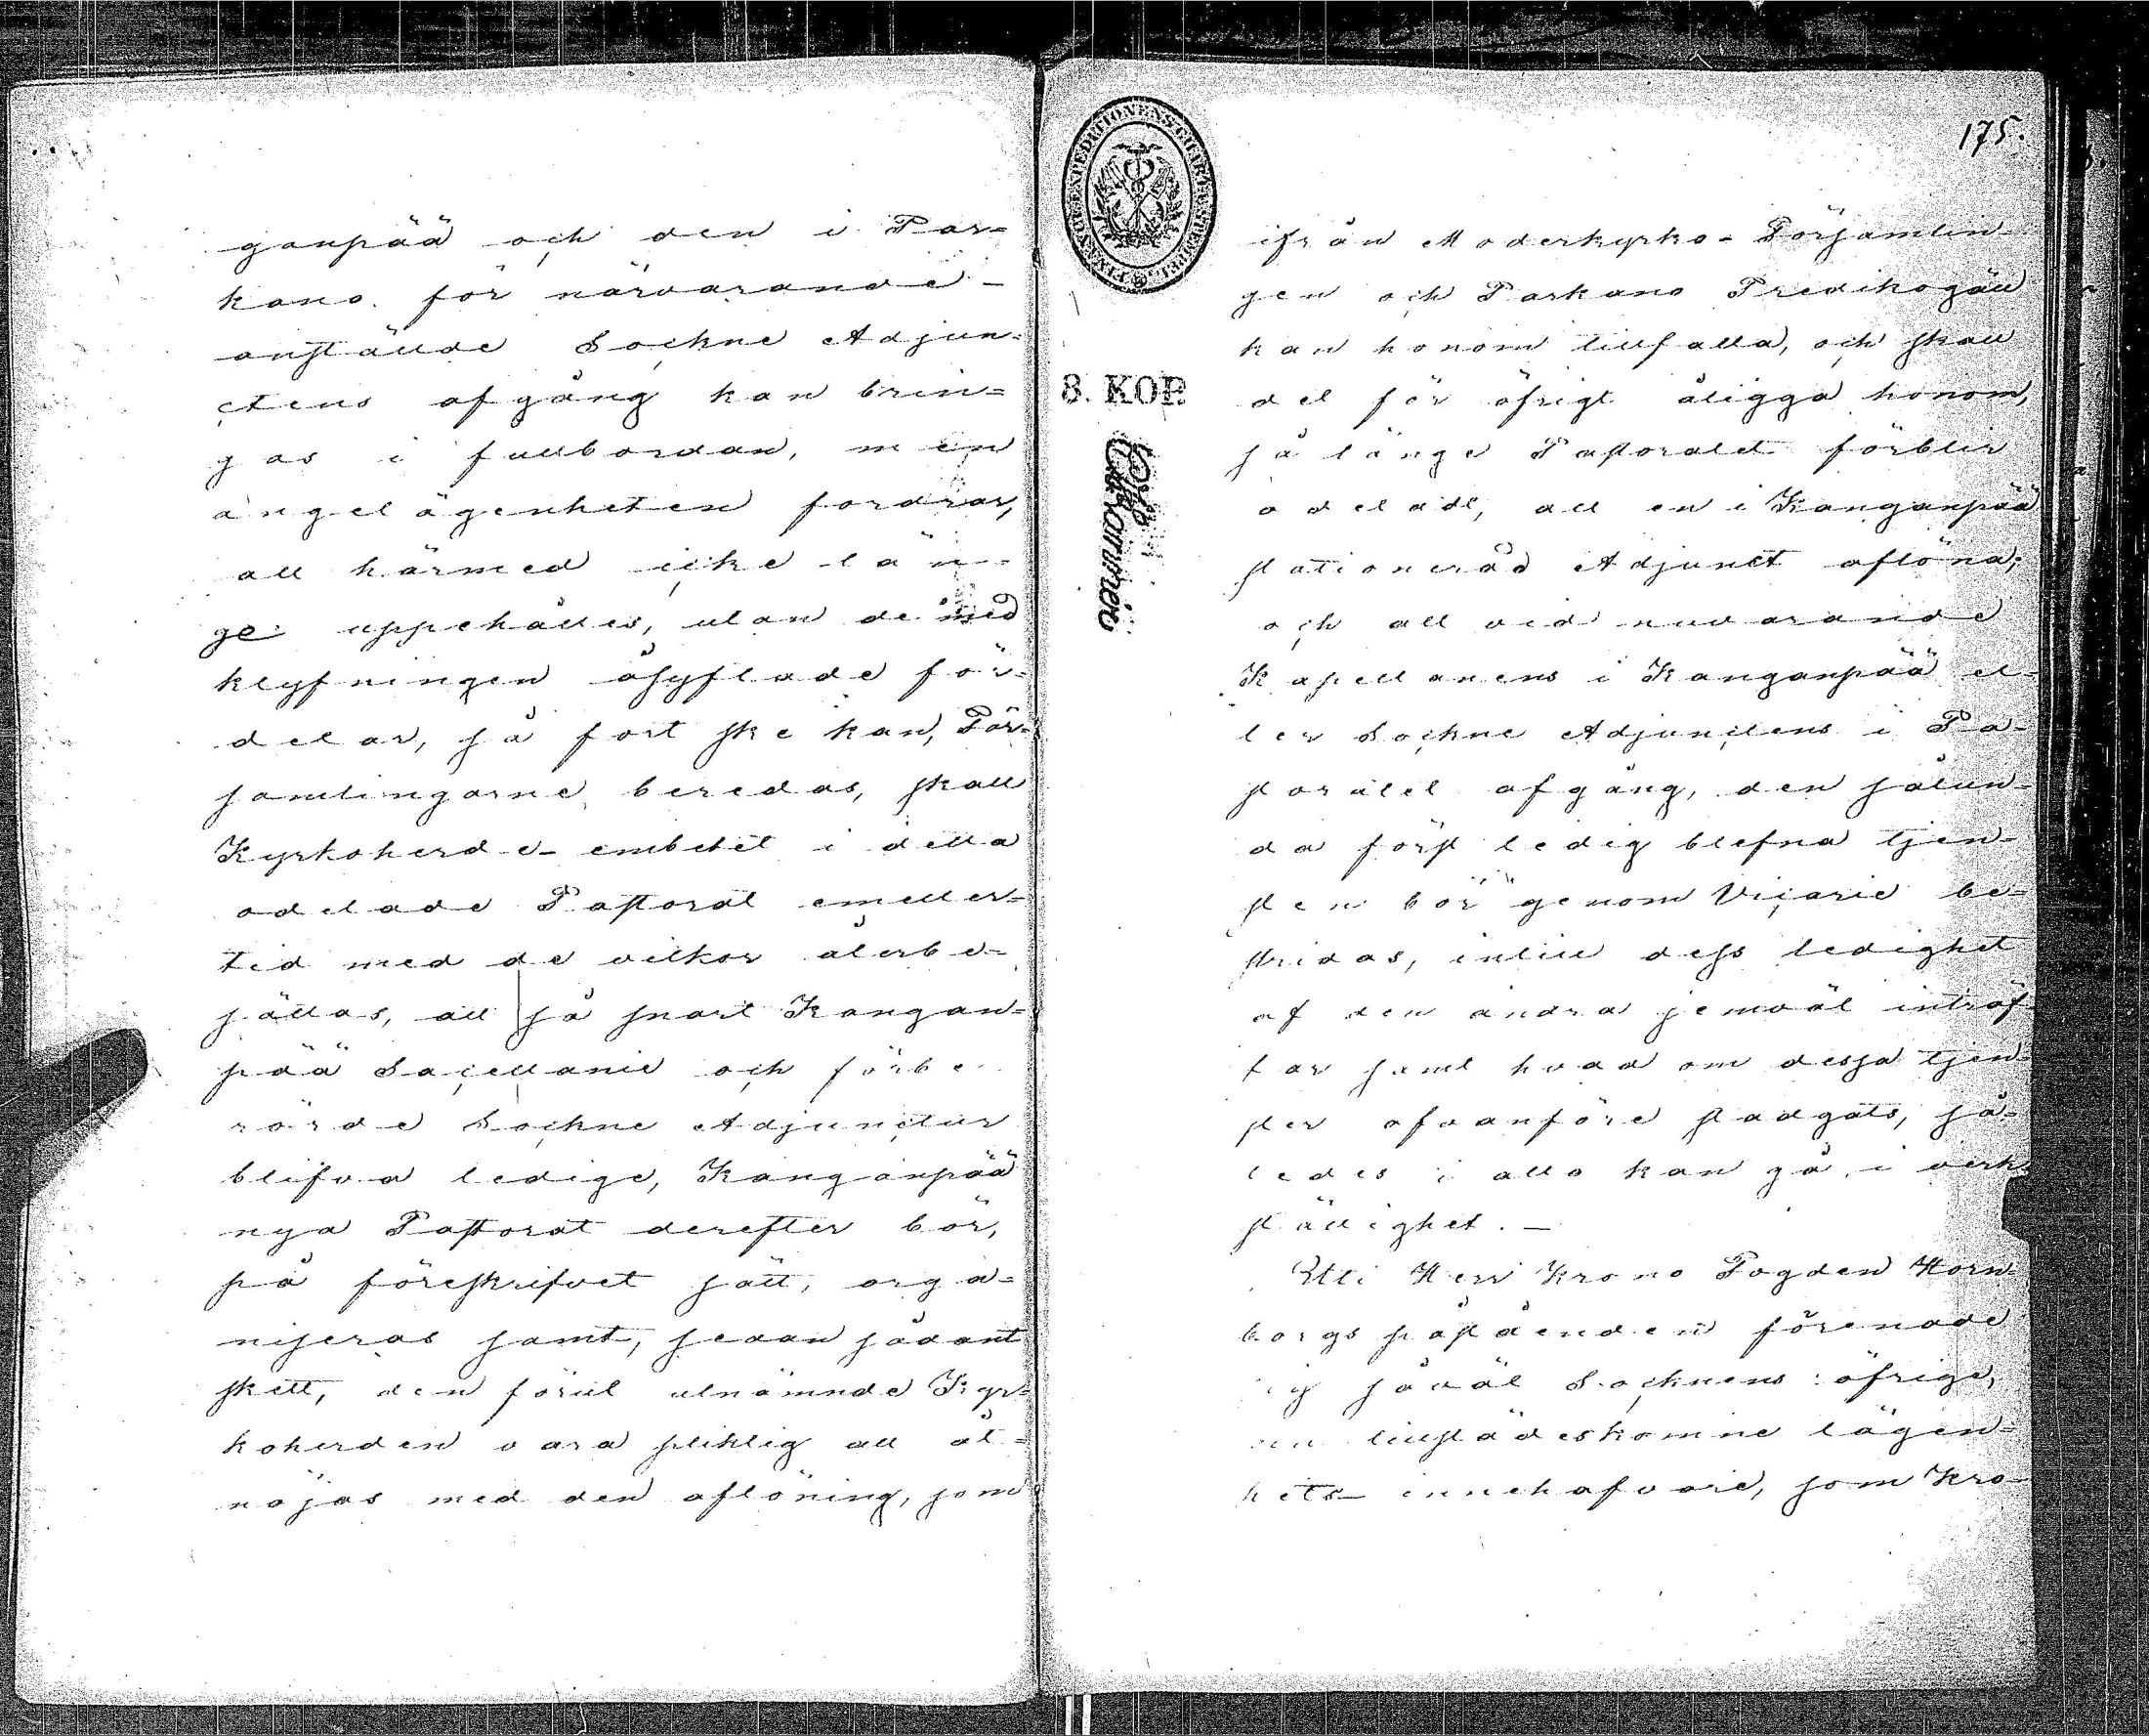 ganpää och den i Par-
kano för närvarande
anstälde Sockne Adjun-
ctens afgång kan brin-
gas i fullbordan, men
angelägenheten fordrar,
att härmed icke län-
ge uppehålles, utan de med
klyfningen åsyftade för-
delar, så fort ske kan, För-
samlingarne beredas, skall
Kyrkoherde-embetet i detta
odelade Pastorat emeller-
tid med de vilkor återbe-
sättas, att så snart Kangan-
pää Sacellanie och förbe-
rörde Sockne Adjunctur
blifva ledige, Kanganpää
nya Pastorat derefter bör,
på föreskrifvet sätt, orga-
niseras samt, sedan sådant
skett, den förut utnämnde Kyr-
koherden vara pliktig att åt-
nöjas med den aflöning, som
175.
ifrån Moderkyrko-Försämlin-
gen och Parkano Predikogäll
kan honom tillfalla, och skall
det för öfrigt åligga honom,
så länge Pastoratet förblir
odeladt, att en i Kanganpää
stationerad Adjunct aflöna;
och att vid nuvarande
Kapellanens i Kanganpää el-
ler Sockne Adjunctens i Pa-
storatet afgång, den sålun-
da först ledig blefna tjen-
sten bör genom Vicarie be-
stridas, intill dess ledighet
af den andra jemväl inträf-
far samt hvad om dessa tjen-
ster ofvanföre stadgats, så-
ledes i allo kan gå i verk-
ställighet. —
Uti Herr Krono Fogden Horn-
borgs påståenden förenade
sig såväl Socknens öfrige,
nu tillstädeskomne lägen-
hets-innehafvare, som Kro-
FINANCE EXPEDITIONENS CHARTÆ STEMPEL
8. KOP.